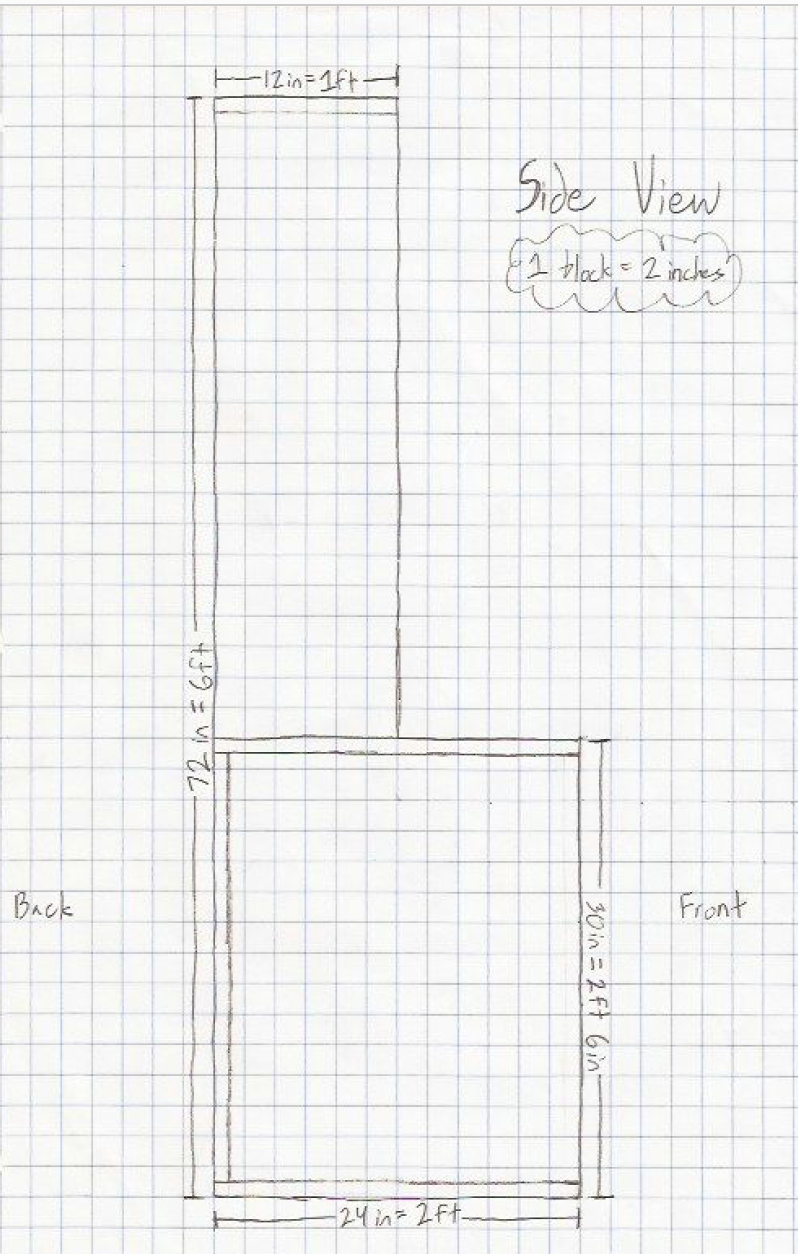 12in=1ft
Side View
1 block = 2 inches
72 in = 6ft
Back
Front
30in = 2ft 6in
24in= 2ft